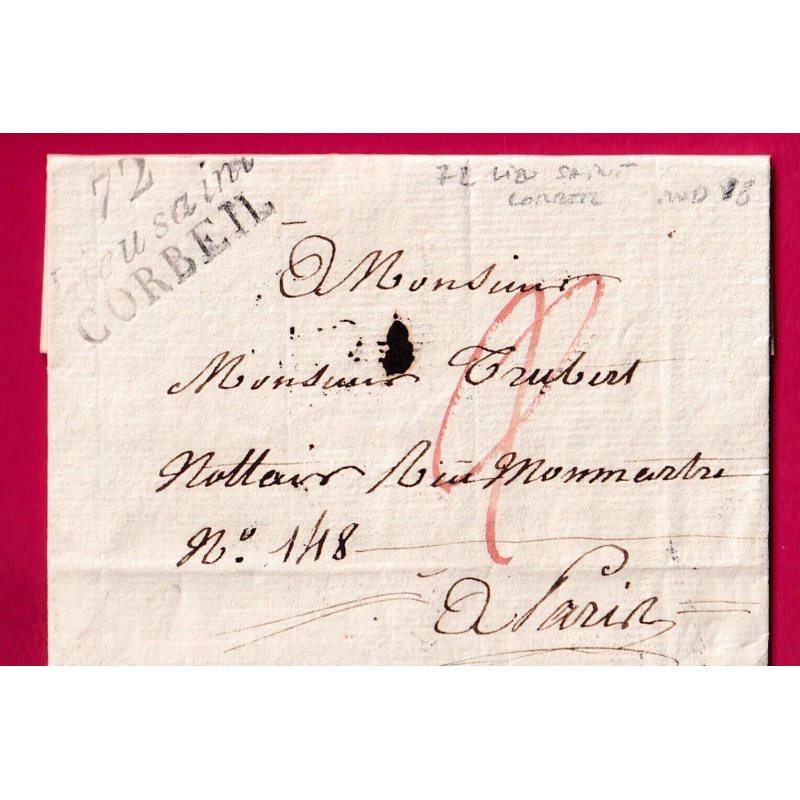 72
Lieusaint
CORBEIL
72 LIEU SAINT
CORBEIL IND 18
A Monsieur
Monsieur Trubert
Nottair Rüe Monmartre
N.º 148
A Paris